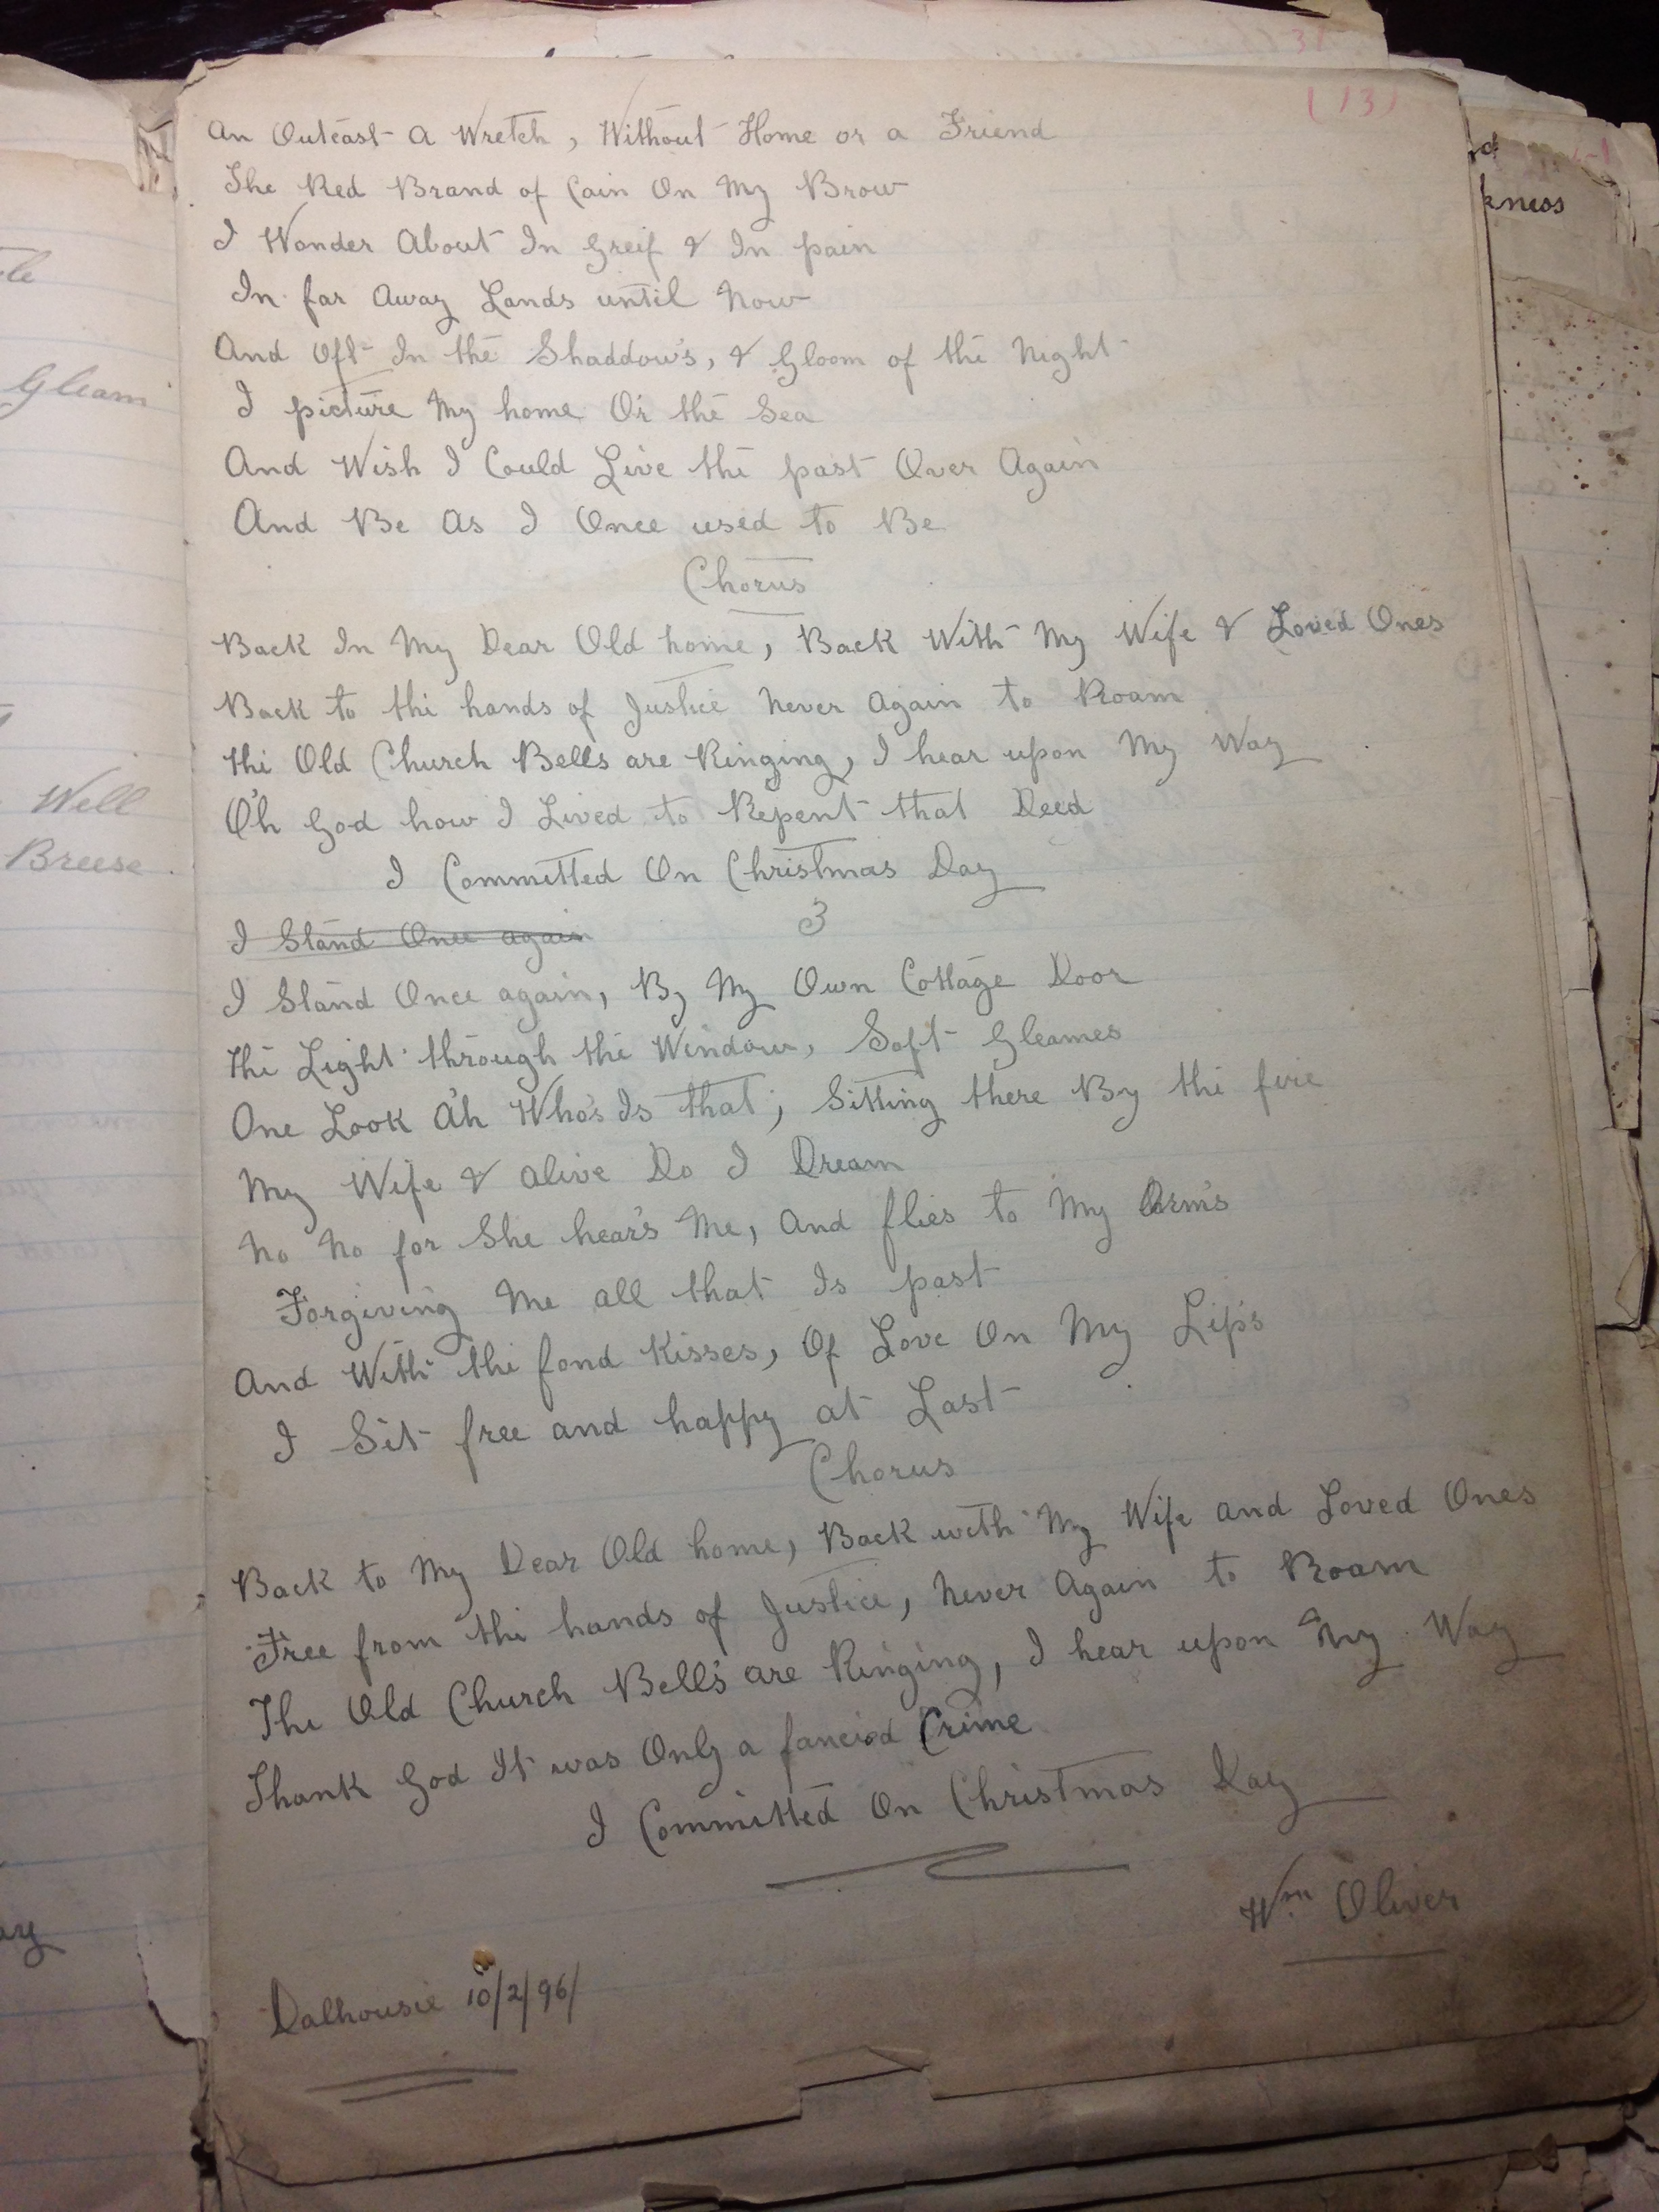 31
(13)
An Outcast A Wretch, Without Home or a Friend
The Red Brand of Cain On My Brow
I Wander About In Greif & In pain
In far Away Lands until Now
And Oft In the Shaddow's, & Gloom of the Night
I picture My home O'r the Sea
And Wish I Could Live the past Over Again
And Be As I Once used to Be
Chorus
Back In My Dear Old home, Back With My Wife & Loved Ones
Back to the hands of Justice Never Again to Roam
the Old Church Bells are Ringing, I hear upon My Way
O'h God how I Lived to Repent that Deed
I Committed On Christmas Day
3
I Stand Once again
I Stand Once again, By My Own Cottage Door
the Light through the Window, Soft Gleames
One Look A'h Who's Is that, Sitting there By the fire
My Wife & alive Do I Dream
No No for She hear's Me, And flies to My Arm's
Forgiving Me all that Is past
And With the fond Kisses, Of Love On My Lip's
I Sit free and happy at Last
Chorus
Back to My Dear Old home, Back with My Wife and Loved Ones
Free from the hands of Justice, Never Again to Roam
The Old Church Bell's are Ringing, I hear upon My Way
Thank God It was Only a fancied Crime
I Committed On Christmas Day
Wm Oliver
Dalhousie 10/2/96/
Gleam
Well
Breese
kness